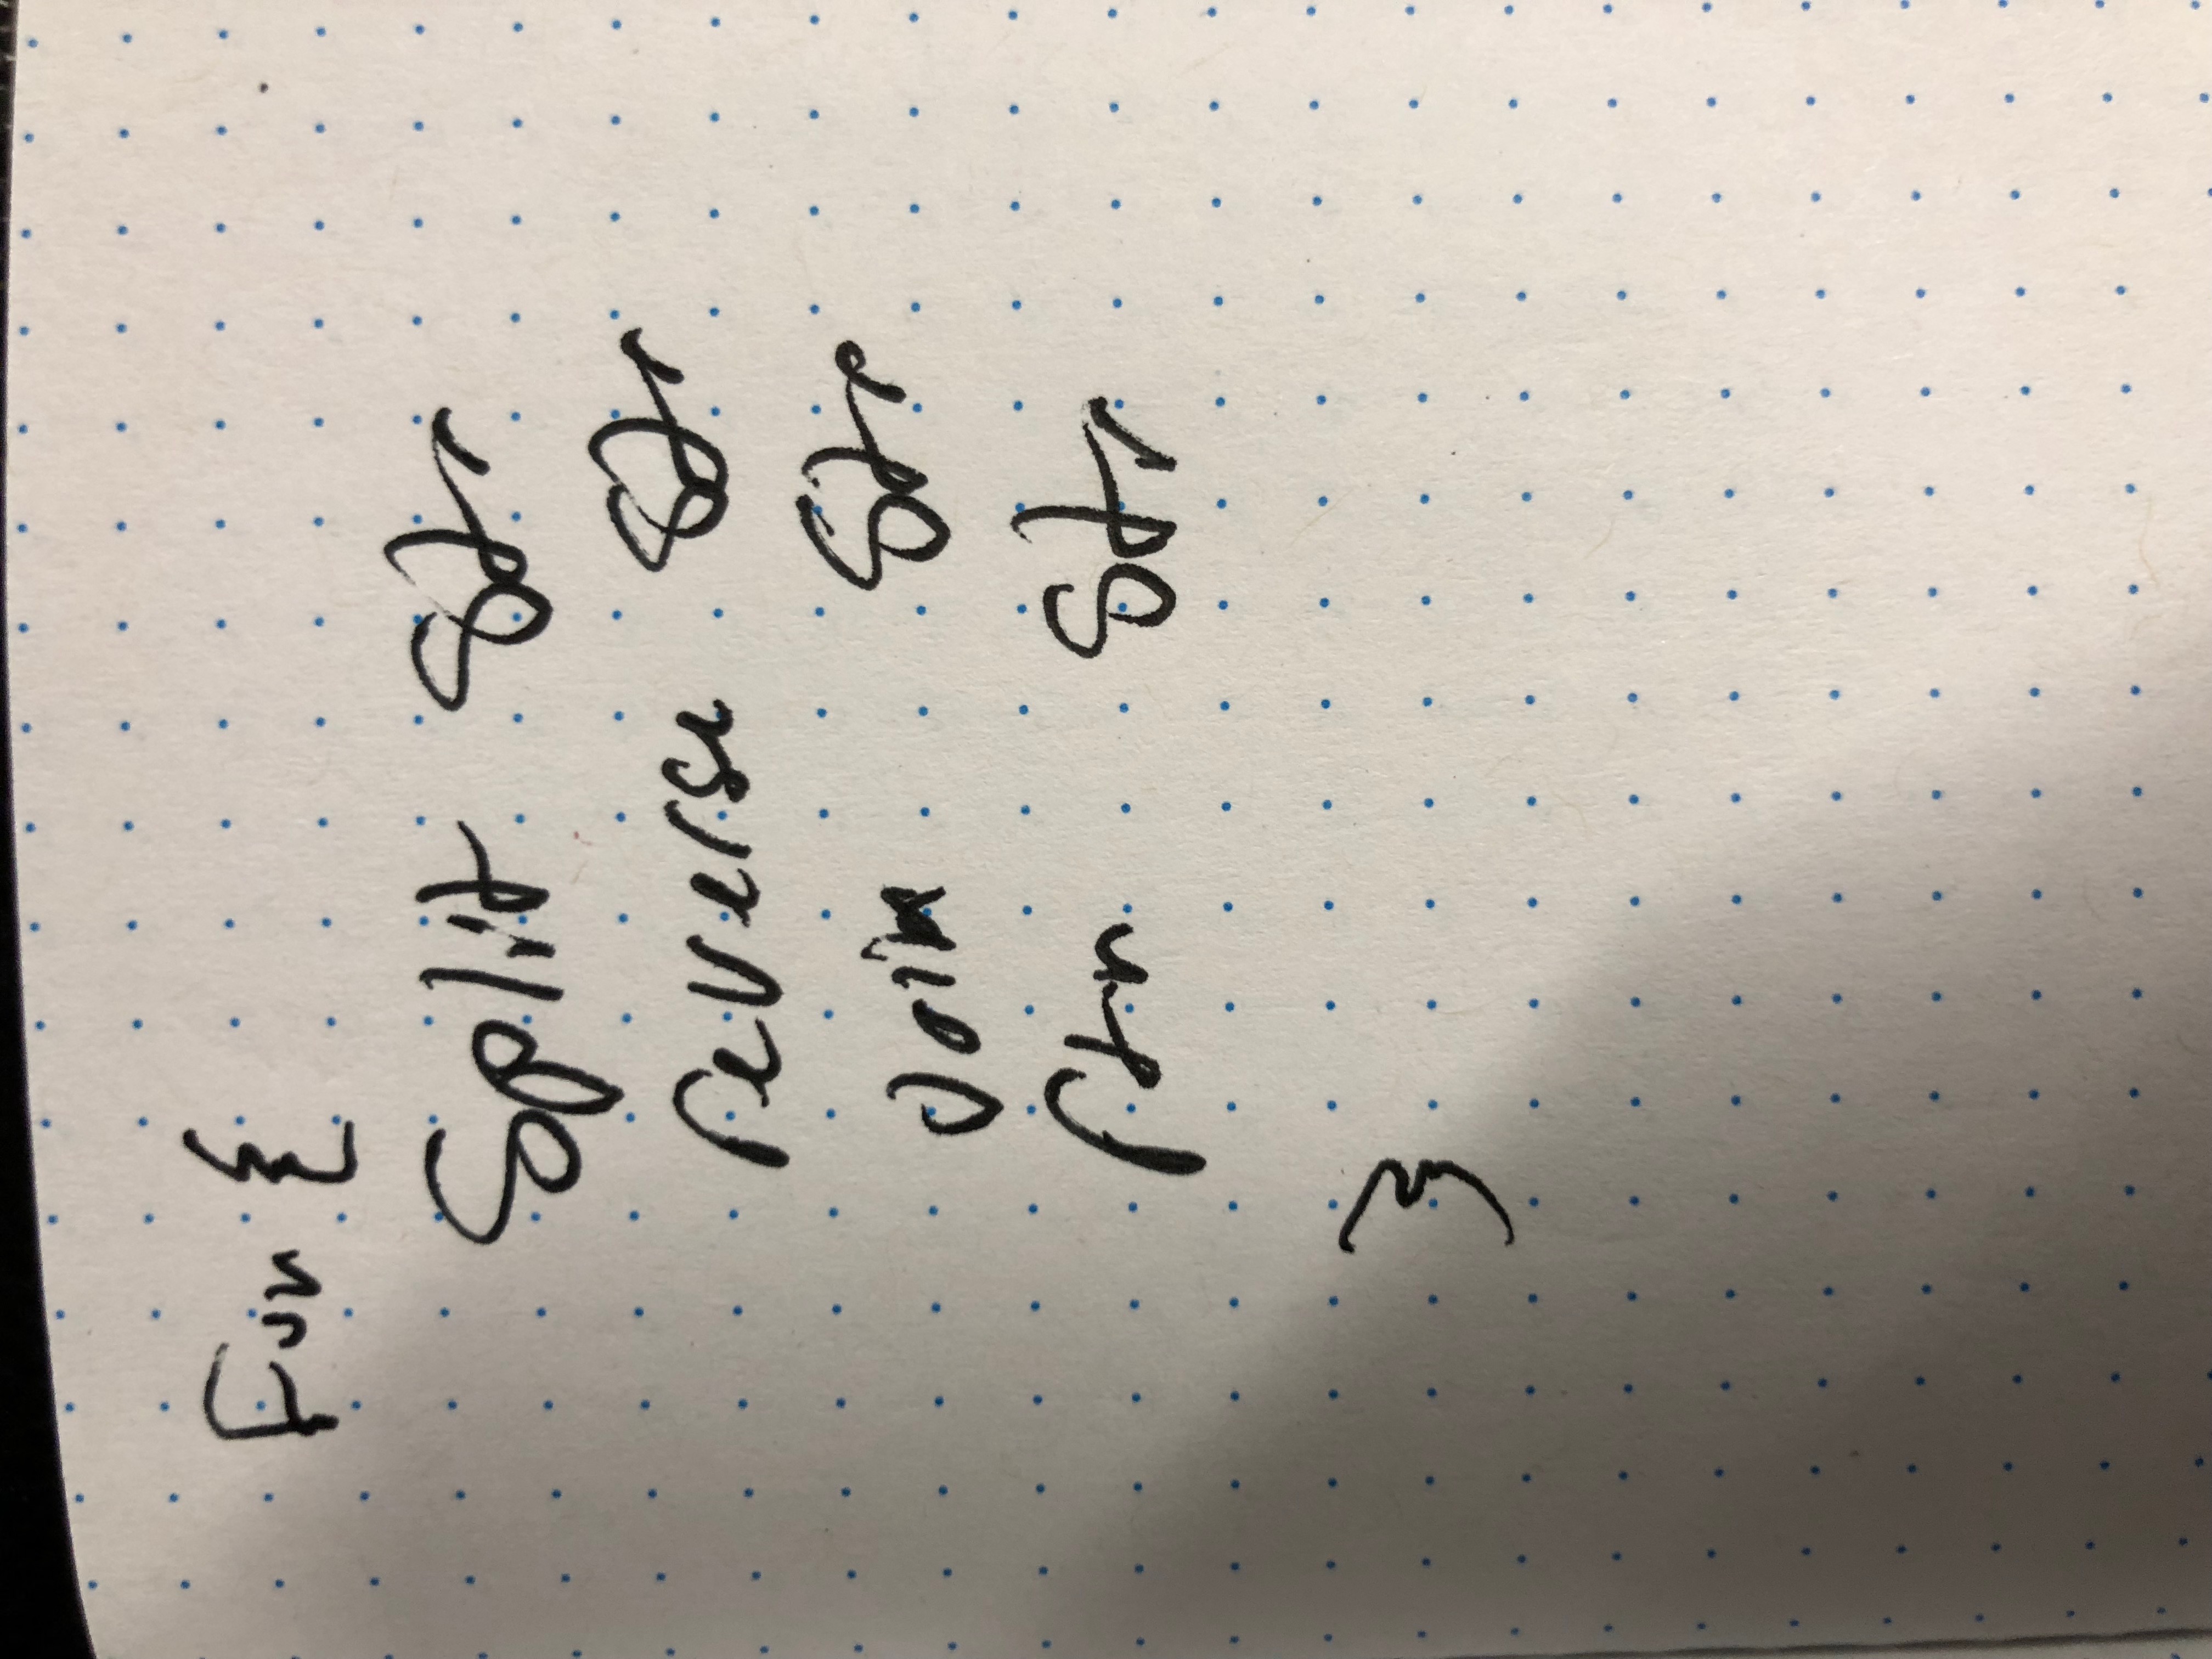 Fun {
Split Str
reverse Str
Str
rtn Str
}